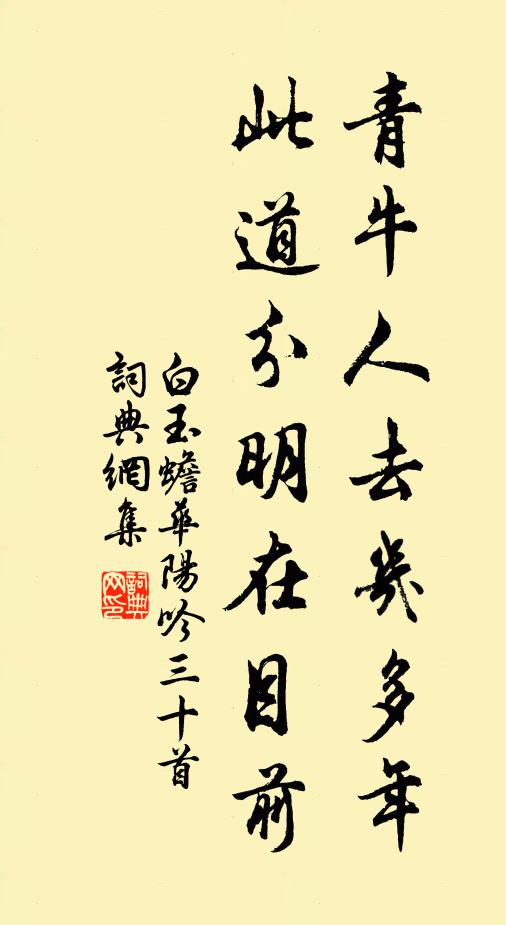 青牛人去幾多年
此道分明在目前
白玉蟾華陽吟三十首
詞典網集
詞典网印